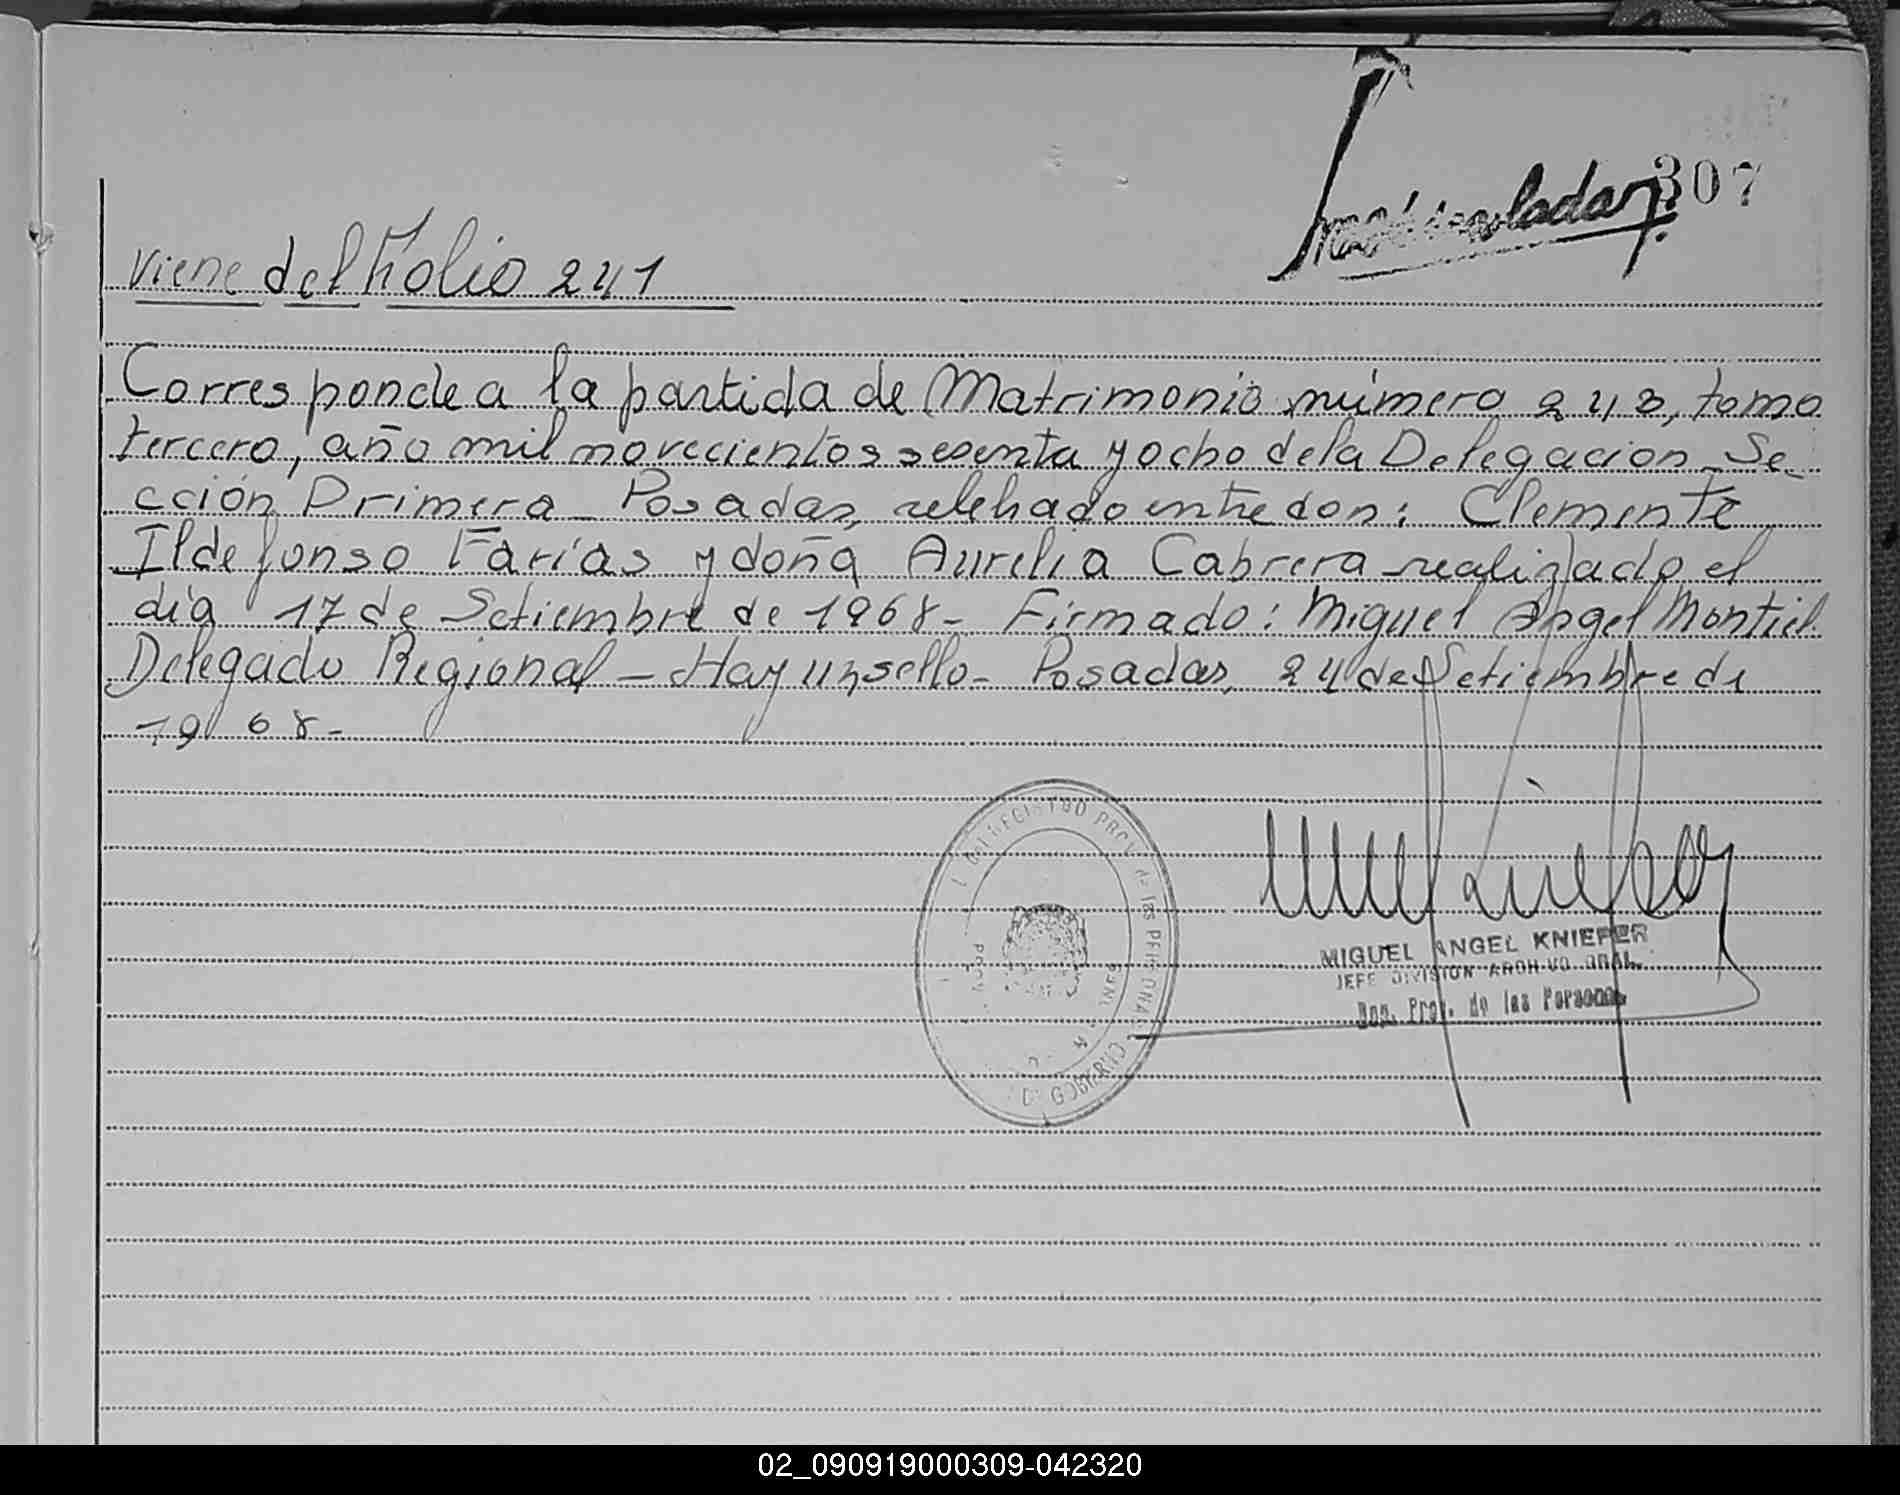 307
Viene del Folio 241
Corresponde a la partida de Matrimonio número 248, tomo
tercero, año mil novecientos sesenta y ocho de la Delegación Se-
cción Primera - Posadas, celebrado entre don: Clemente
Ildefonso Farías y doña Aurelia Cabrera realizado el
día 17 de Setiembre de 1968- Firmado: Miguel Angel Montiel
Delegado Regional - Hay un sello - Posadas, 24 de Setiembre de
1968-
REGISTRO PROV. de las PERSONAS
GOBIERNO
MIGUEL ANGEL KNIEFER
JEFE DIVISION ARCHIVO GRAL.
Prov. de las Personas
02_090919000309-042320